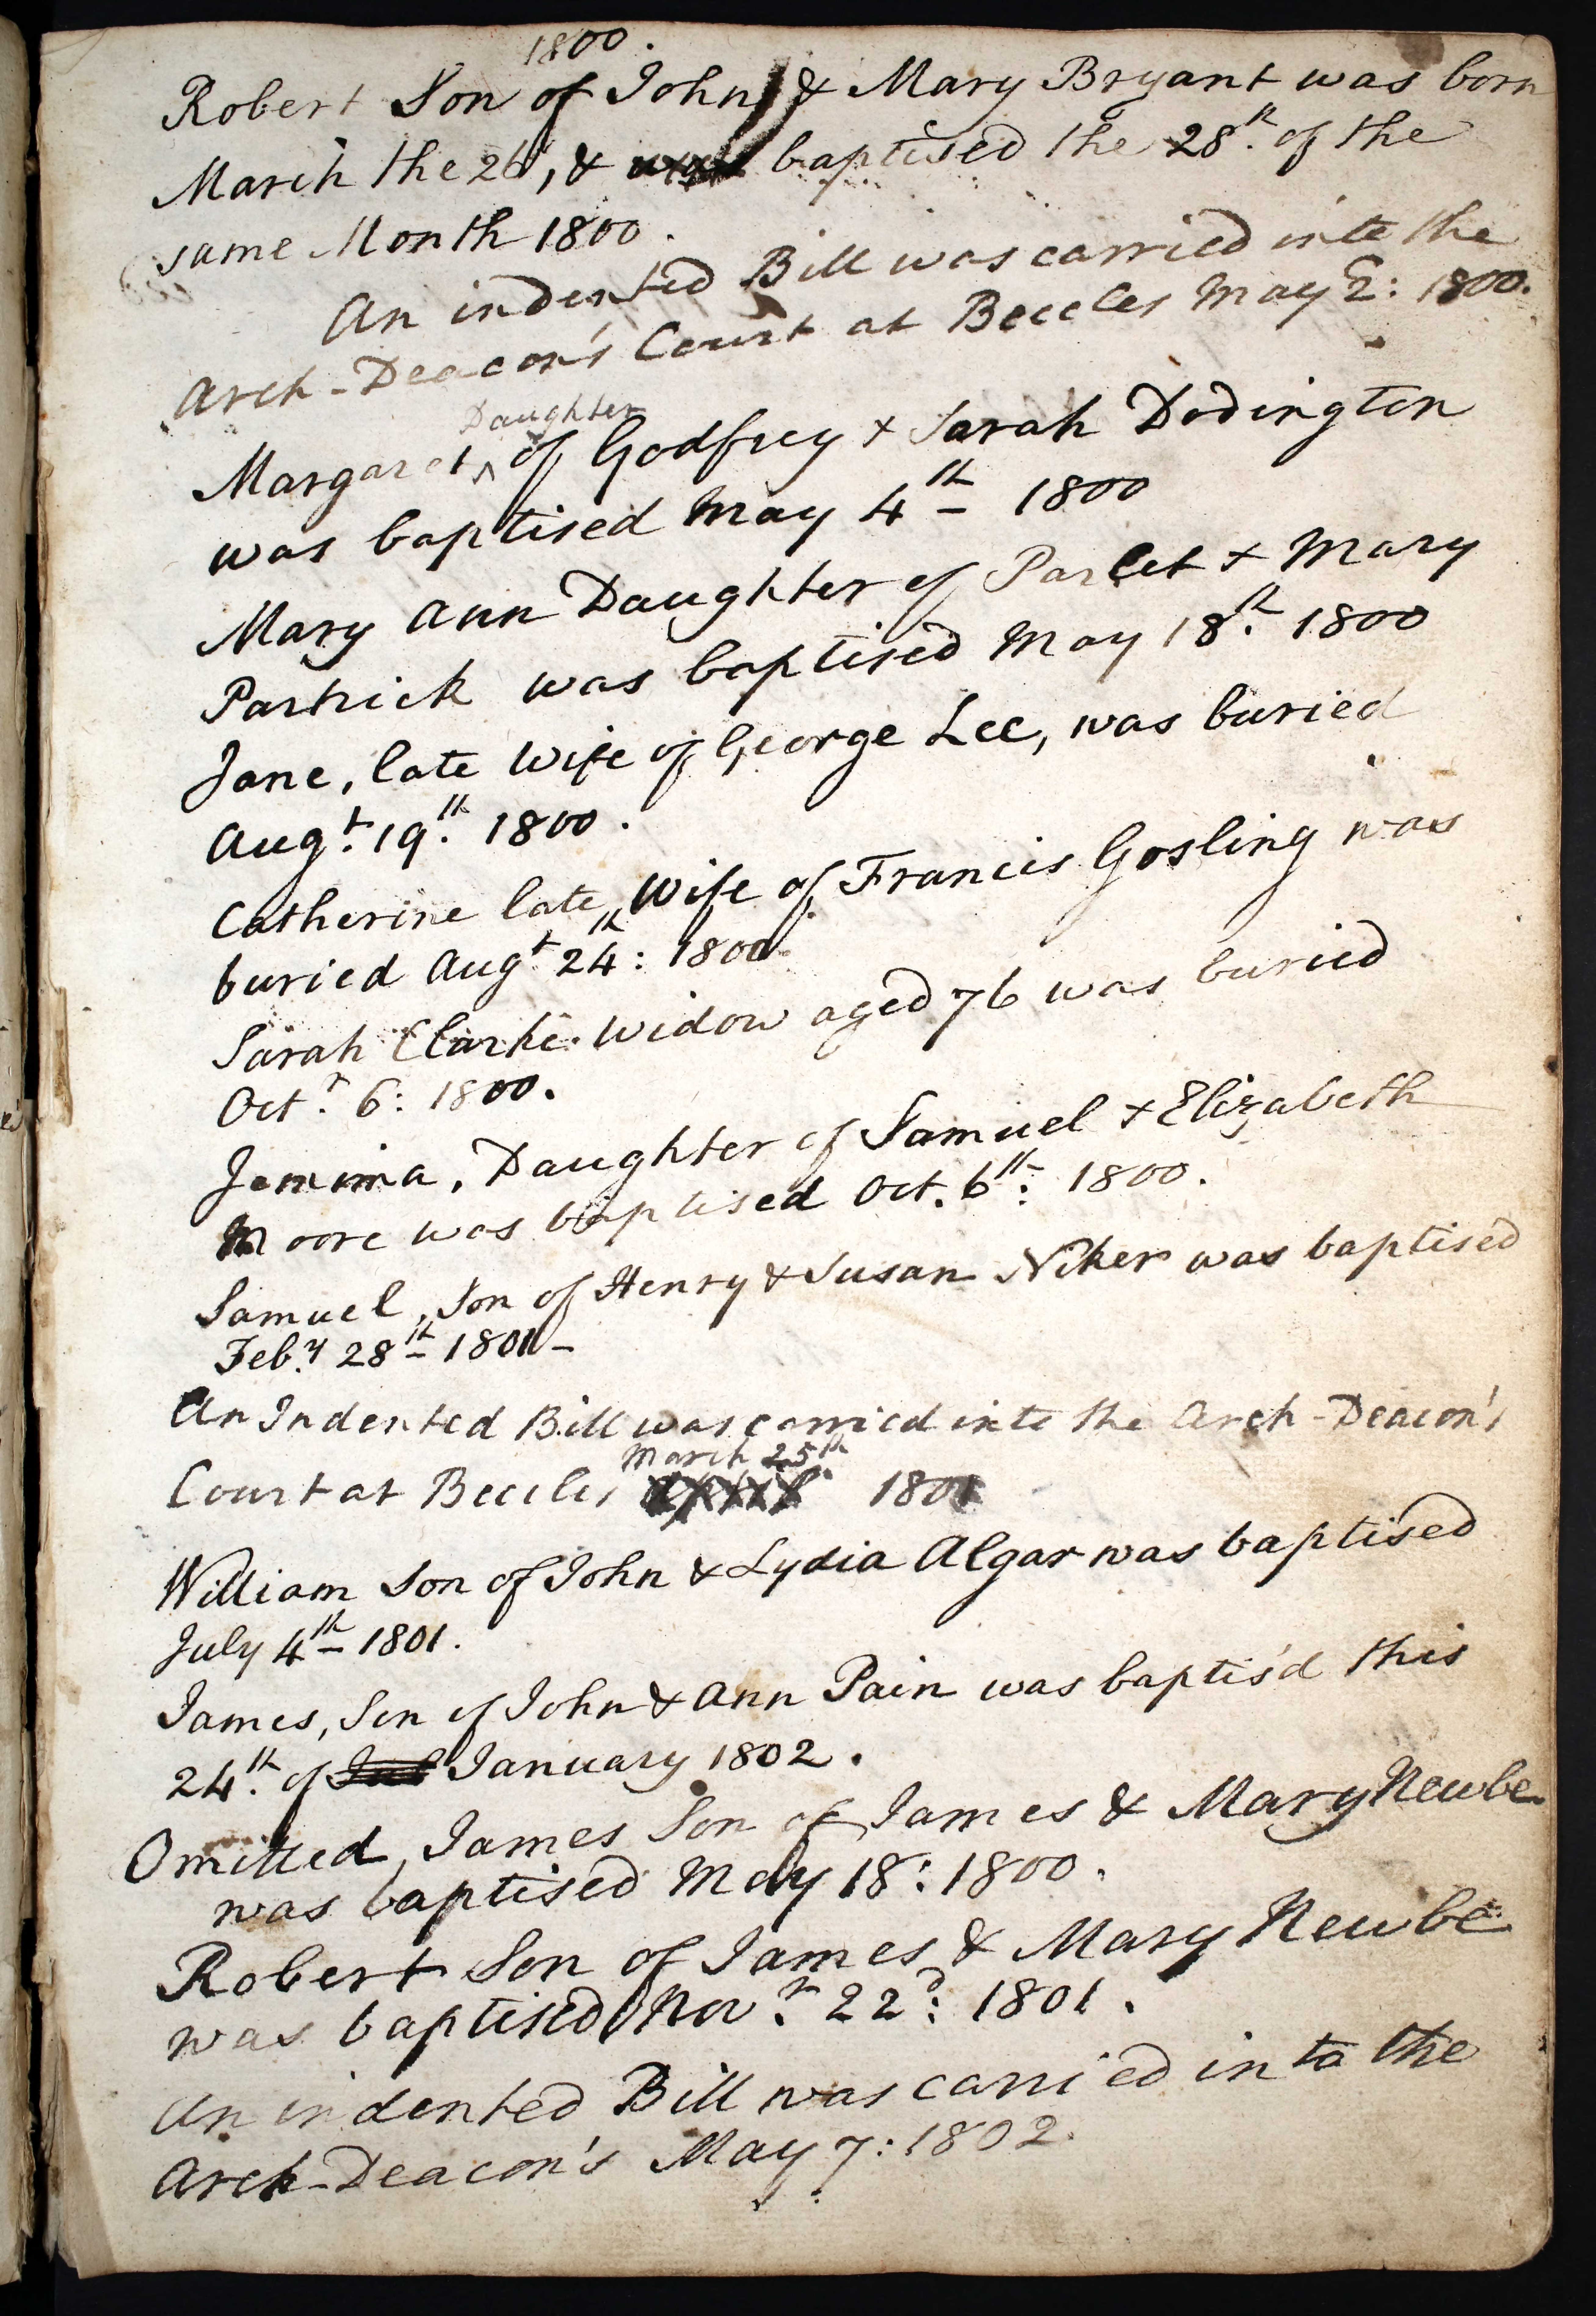 1800.
Robert Son of John & Mary Bryant was born
March the 26, & baptised the 28th. of the
same Month 1800.
An indented Bill was carried into the
Arch-Deacon's Court at Beccles May 2: 1800.
Daughter
Margaret, ^ of Godfrey & Sarah Dodington
was baptised May 4th 1800
Mary Ann Daughter of Parlet & Mary
Partrick was baptised May 18th. 1800
Jane, late Wife of George Lee, was buried
Augt. 19th. 1800.
Catherine late Wife of Francis Gosling was
buried Augt. 24th: 1800.
Sarah Clarke Widow aged 76 was buried
Octr. 6: 1800.
Jemima, Daughter of Samuel & Elizabeth
Moore was baptised Oct. 6th: 1800.
Samuel, Son of Henry & Susan Niker was baptised
Feby. 28th 1801-
An Indented Bill was carried into the Arch-Deacon's
March 25th
Court at Beccles April 1801
William Son of John & Lydia Algar was baptised
July 4th 1801.
James, Son of John & Ann Pain was baptis'd this
24th. of Jul January 1802.
Omitted, James Son of James & Mary Newbe
was baptised May 18: 1800.
Robert Son of James & Mary Newbe
was baptised Novr. 22d: 1801.
An indented Bill was carried into the
Arch-Deacon's May 7: 1802.